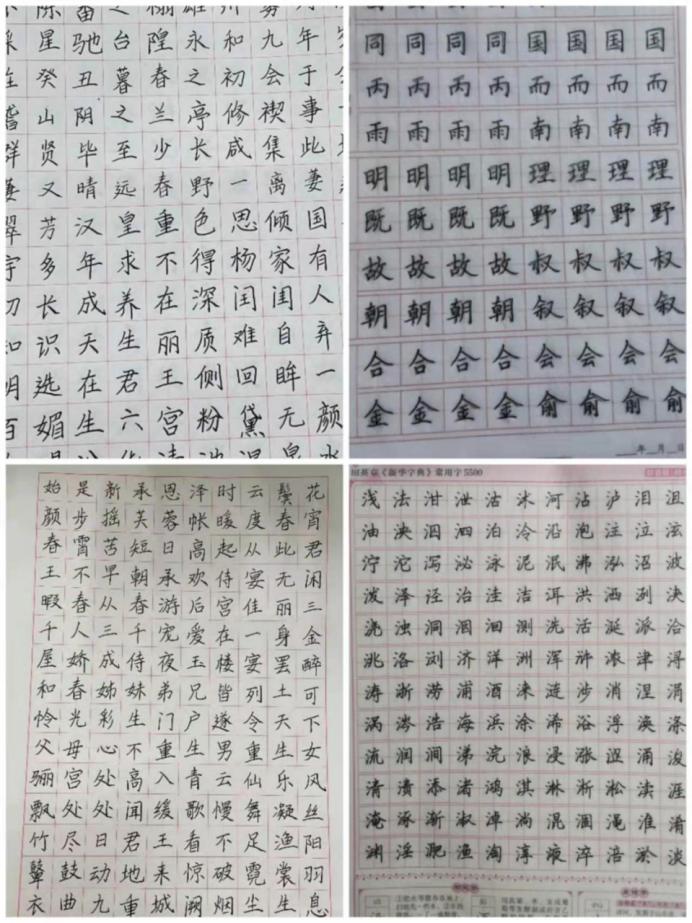 星驰台隍永和九年
癸丑暮春之初会于
山阴之兰亭修禊事
贤毕至少长咸集此
又晴远春野一离萋
芳汉皇重色思倾国
多年求不得杨家有
长成养在深闺闺人
识天生丽质难自弃
選在君王侧回眸一
媚生六宫粉黛无颜
同同同同国国国国
丙丙丙丙而而而而
雨雨雨雨南南南南
明明明明理理理理
既既既既野野野野
故故故故叔叔叔叔
朝朝朝朝叙叙叙叙
合合合合会会会会
金金金金俞俞俞俞
年 月 日
始是新承恩泽时云鬓花
颜步摇芙蓉帐暖度春宵
春霄苦短日高起从此君
王不早朝承欢侍宴无闲
暇春从春游后宫佳丽三
千人三千宠爱在一身金
屋娇成侍夜玉楼宴罢醉
和春姊妹弟兄皆列土可
怜光彩生门户遂令天下
父母心不重生男重生女
骊宫处高入青云仙乐风
飘处处闻缓歌慢舞凝丝
竹尽日君王看不足渔阳
鼙鼓动地来惊破霓裳羽
衣曲九重城阙烟尘生息
田英章《新华字典》常用字5500
浅法泔泄沽沭河沾泸泪沮
油泱泅泗泊泠沿泡注泣泫
泞沱泻泌泳泥泯沸泓沼波
泼泽泾治洼洁洱洪洒洌浃
浇浊洞洇洄测洗活涎派洽
洮洛浏济洋洲浑浒浓津浔
涛浙涝浦酒涞涟涉消涅涓
涡涔浩海浜涂浠浴浮涣涤
流润涧涕浣浪浸涨涩涌浚
清渍添渚鸿淇淋淅淞渎涯
淹涿渐淑淖淌混涸渑淮淆
渊淫淝渔淘淳液淬涪淤淡